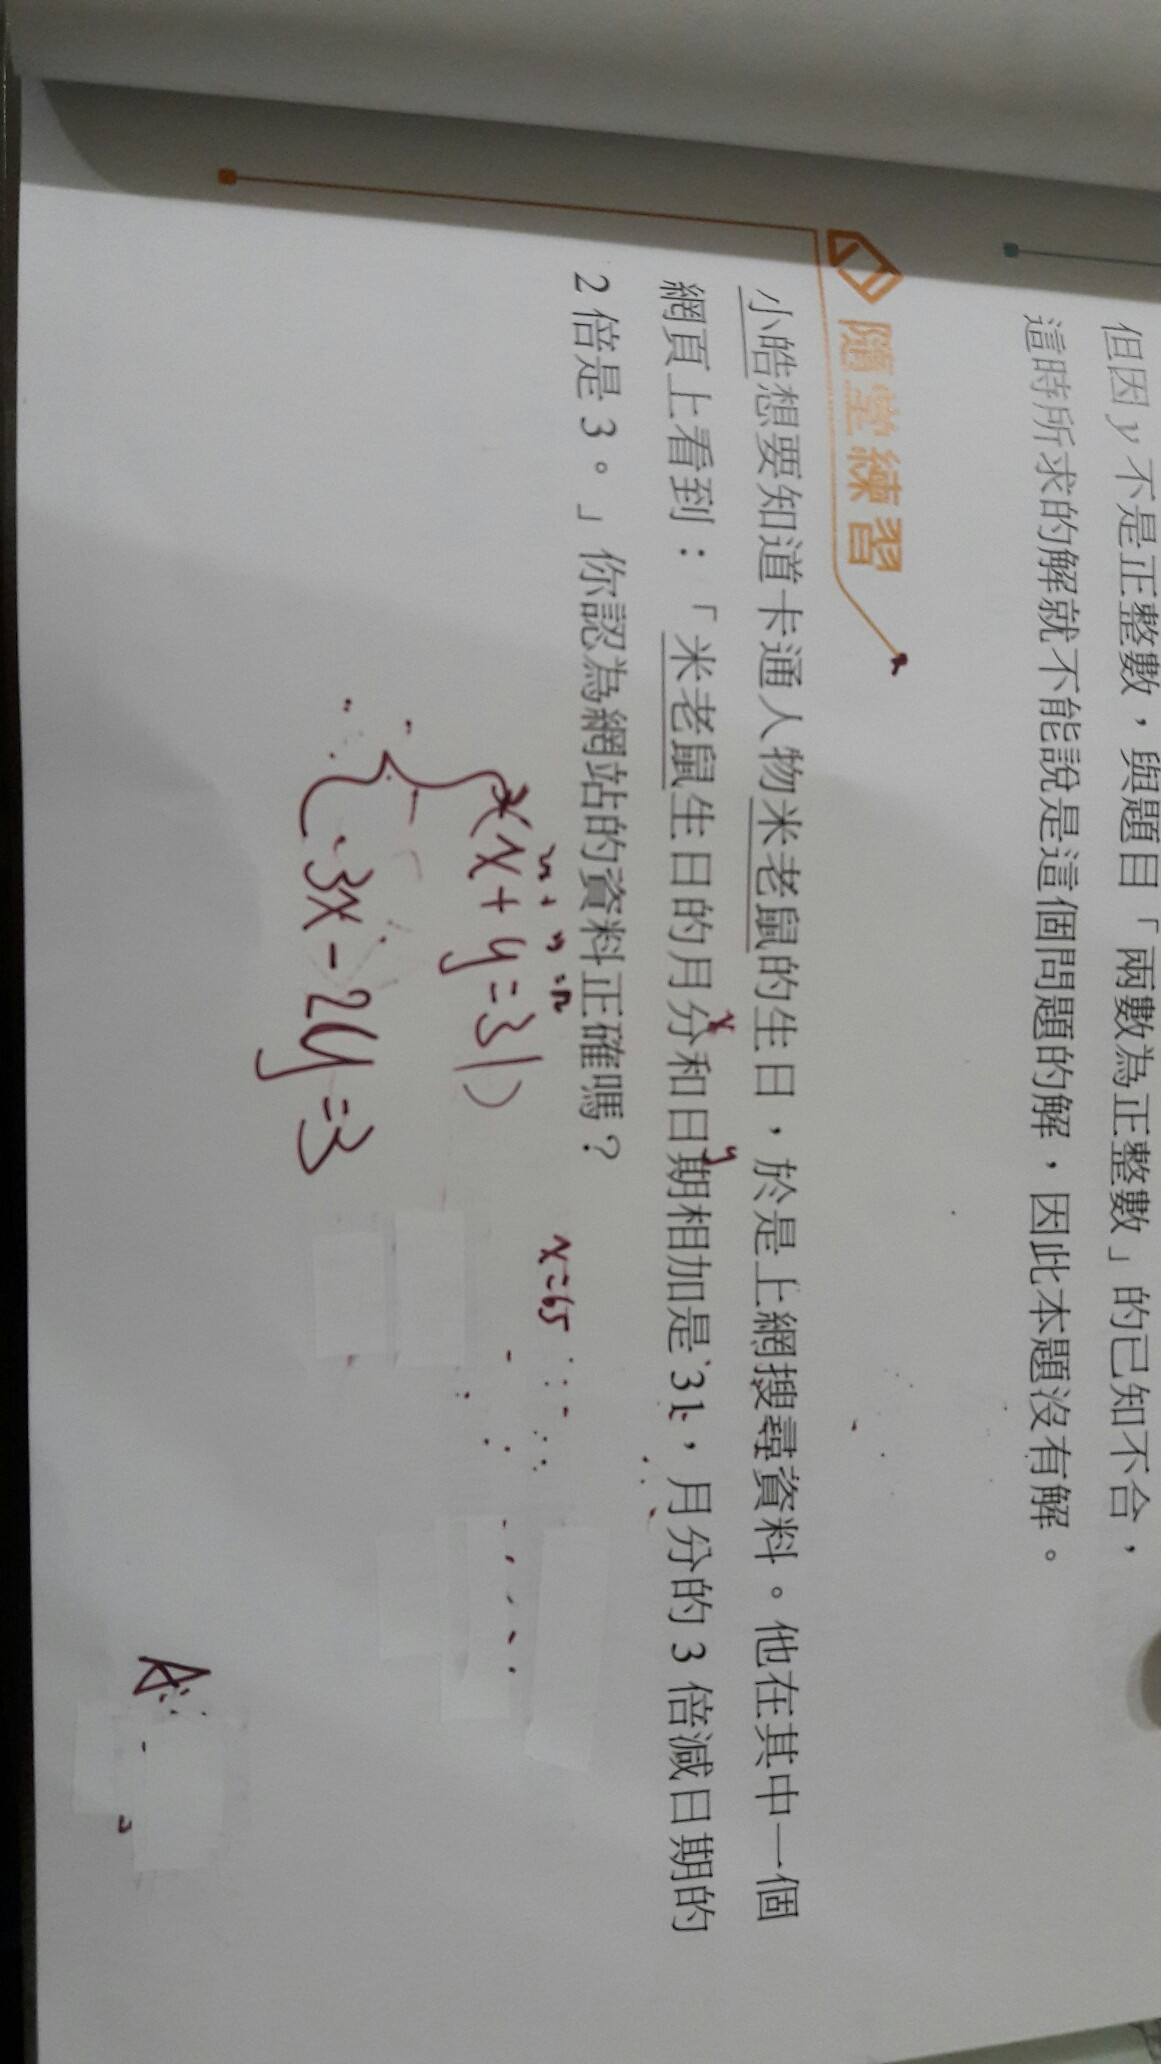 但因 y 不是正整數，與題目「兩數為正整數」的已知不合，
這時所求的解就不能說是這個問題的解，因此本題沒有解。
隨堂練習
小皓想要知道卡通人物米老鼠的生日，於是上網搜尋資料。他在其中一個
x y
網頁上看到：「米老鼠生日的月分和日期相加是 31，月分的 3 倍減日期的
2 倍是 3。」你認為網站的資料正確嗎？
x+y=31
x=65
3x-2y=3
A: